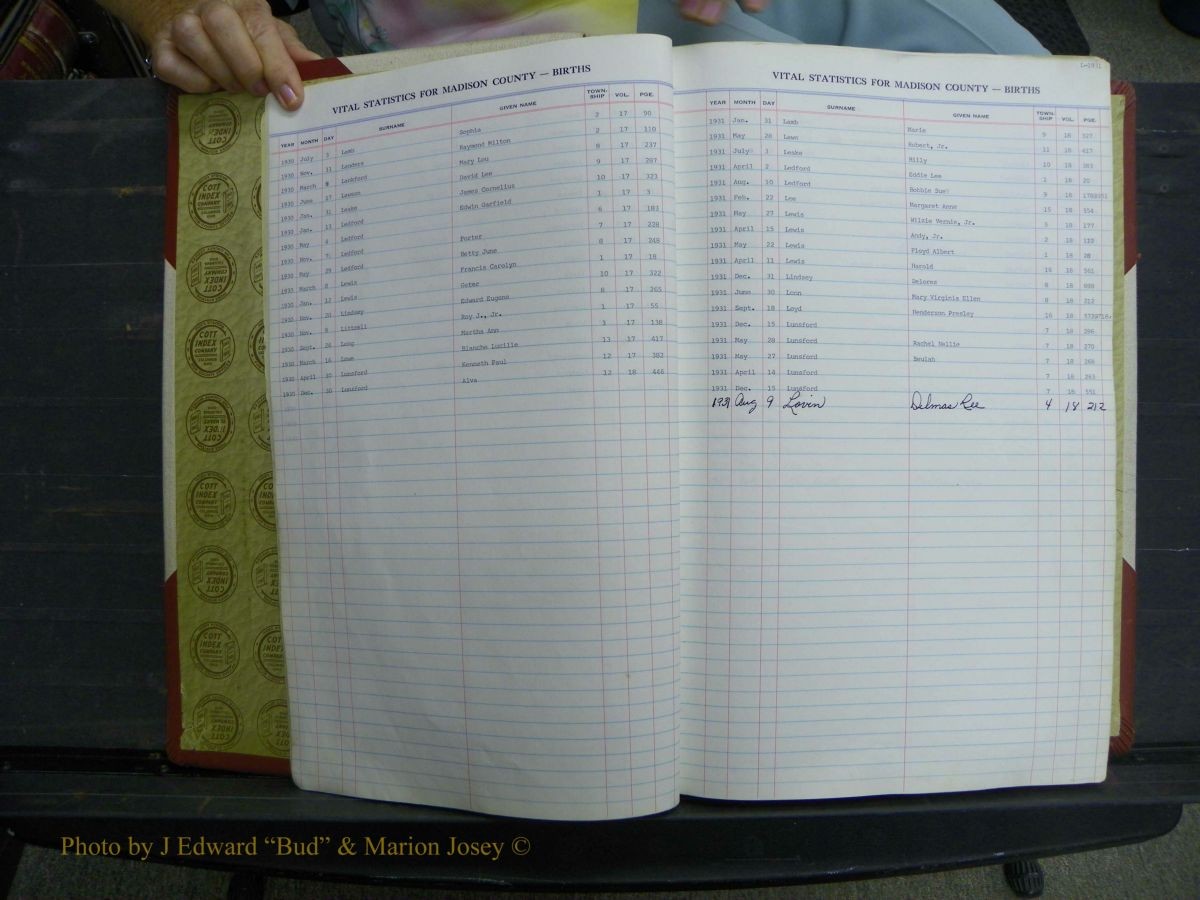 VITAL STATISTICS FOR MADISON COUNTY — BIRTHS
YEAR MONTH DAY SURNAME GIVEN NAME TOWN-SHIP VOL. PGE.
1930 July 3 Lamb Sophia 2 17 90
1930 Nov. 11 Landers Raymond Milton 2 17 110
1930 March 8 Lankford Mary Lou 8 17 237
1930 June 17 Lawson David Lee 9 17 287
1930 Jan. 31 Leake James Cornelius 10 17 323
1930 Jan. 13 Ledford Edwin Garfield 1 17 3
1930 May 4 Ledford 6 17 183
1930 Nov. 7 Ledford Porter 7 17 228
1930 May 29 Ledford Betty June 8 17 248
1930 March 8 Lewis Francis Carolyn 1 17 18
1930 Jan. 12 Lewis Geter 10 17 322
1930 Nov. 20 Lindsey Edward Eugene 8 17 265
1930 Nov. 8 Littrell Roy J., Jr. 1 17 55
1930 Sept. 24 Long Martha Ann 3 17 138
1930 March 16 Lowe Blanche Lucille 13 17 417
1930 April 10 Lunsford Kenneth Paul 12 17 382
1930 Dec. 30 Lunsford Alva 12 18 446
L-1931
VITAL STATISTICS FOR MADISON COUNTY — BIRTHS
YEAR MONTH DAY SURNAME GIVEN NAME TOWN-SHIP VOL. PGE.
1931 Jan. 31 Lamb Marie 9 18 327
1931 May 28 Laws Robert, Jr. 11 18 417
1931 July 3 Leake Billy 10 18 383
1931 April 2 Ledford Eddie Lee 1 18 20
1931 Aug. 10 Ledford Bobbie Sue 9 18
1931 Feb. 22 Lee Margaret Anne 15 18 554
1931 May 27 Lewis Wilzie Vernis, Jr. 3 18 177
1931 April 15 Lewis Andy, Jr. 2 18
1931 May 22 Lewis Floyd Albert 1 18 28
1931 April 11 Lewis Harold 16 18 561
1931 Dec. 31 Lindsey Delores 8 18
1931 June 30 Loon Mary Virginia Ellen 8 18 312
1931 Sept. 18 Loyd Henderson Presley 16 18
1931 Dec. 15 Lunsford 7 18 296
1931 May 28 Lunsford Rachel Nellie 7 18 270
1931 May 27 Lunsford Beulah 7 18 266
1931 April 14 Lunsford 7 18 263
1931 Dec. 15 Lunsford 7 18 551
1931 Aug 9 Lovin Delmas Lee 4 18 212
COTT
INDEX
COMPANY
COLUMBUS
OHIO
Photo by J Edward “Bud” & Marion Josey ©